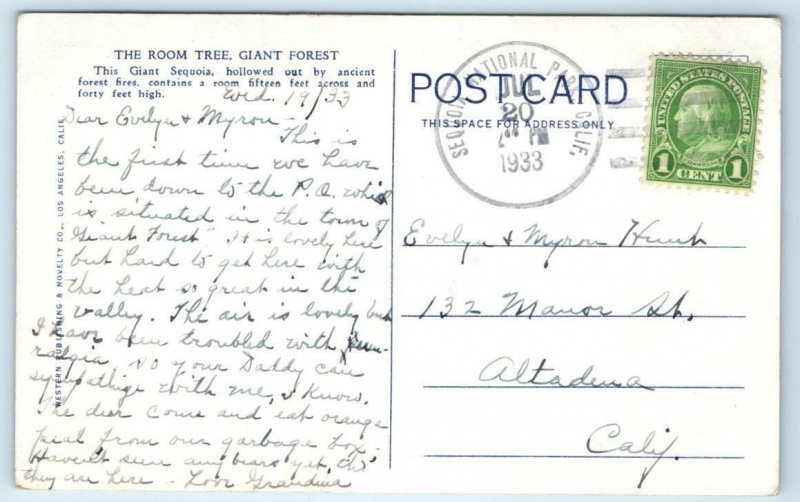 THE ROOM TREE, GIANT FOREST
This Giant Sequoia, hollowed out by ancient
forest fires, contains a room fifteen feet across and
forty feet high.
Wed. 19/33
Dear Evelyn & Myron -
This is
the first time we have
been down to the P.O. which
is situated in the town of
"Giant Forest" It is lovely here
but hard to get here with
the heat so great in the
valley. The air is lovely but
I have been troubled with neu-
ralgia so your Daddy can
sympathize with me, I know.
The deer come and eat orange
peal from our garbage box -
Haven't seen any bears yet, tho'
they are here - Love Grandma
WESTERN PUBLISHING & NOVELTY CO., LOS ANGELES, CALIF.
POST CARD
THIS SPACE FOR ADDRESS ONLY
SEQUOIA NATIONAL PARK CALIF.
JUL
20
PM
1933
UNITED STATES POSTAGE
FRANKLIN
1 1
CENT
Evelyn & Myron Hunt
132 Manor St.
Altadena
Calif.